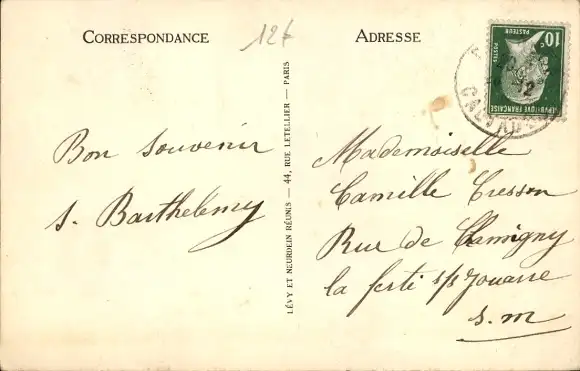 CORRESPONDANCE
12f
ADRESSE
10c
POSTES
PASTEUR
RÉPUBLIQUE FRANÇAISE
CALVADOS
Bon souvenir
S. Barthélémy
LÉVY ET NEURDEIN RÉUNIS — 44, RUE LETELLIER — PARIS
Mademoiselle
Camille Cresson
Rue de Chamigny
la ferté s/s Jouarre
S. M